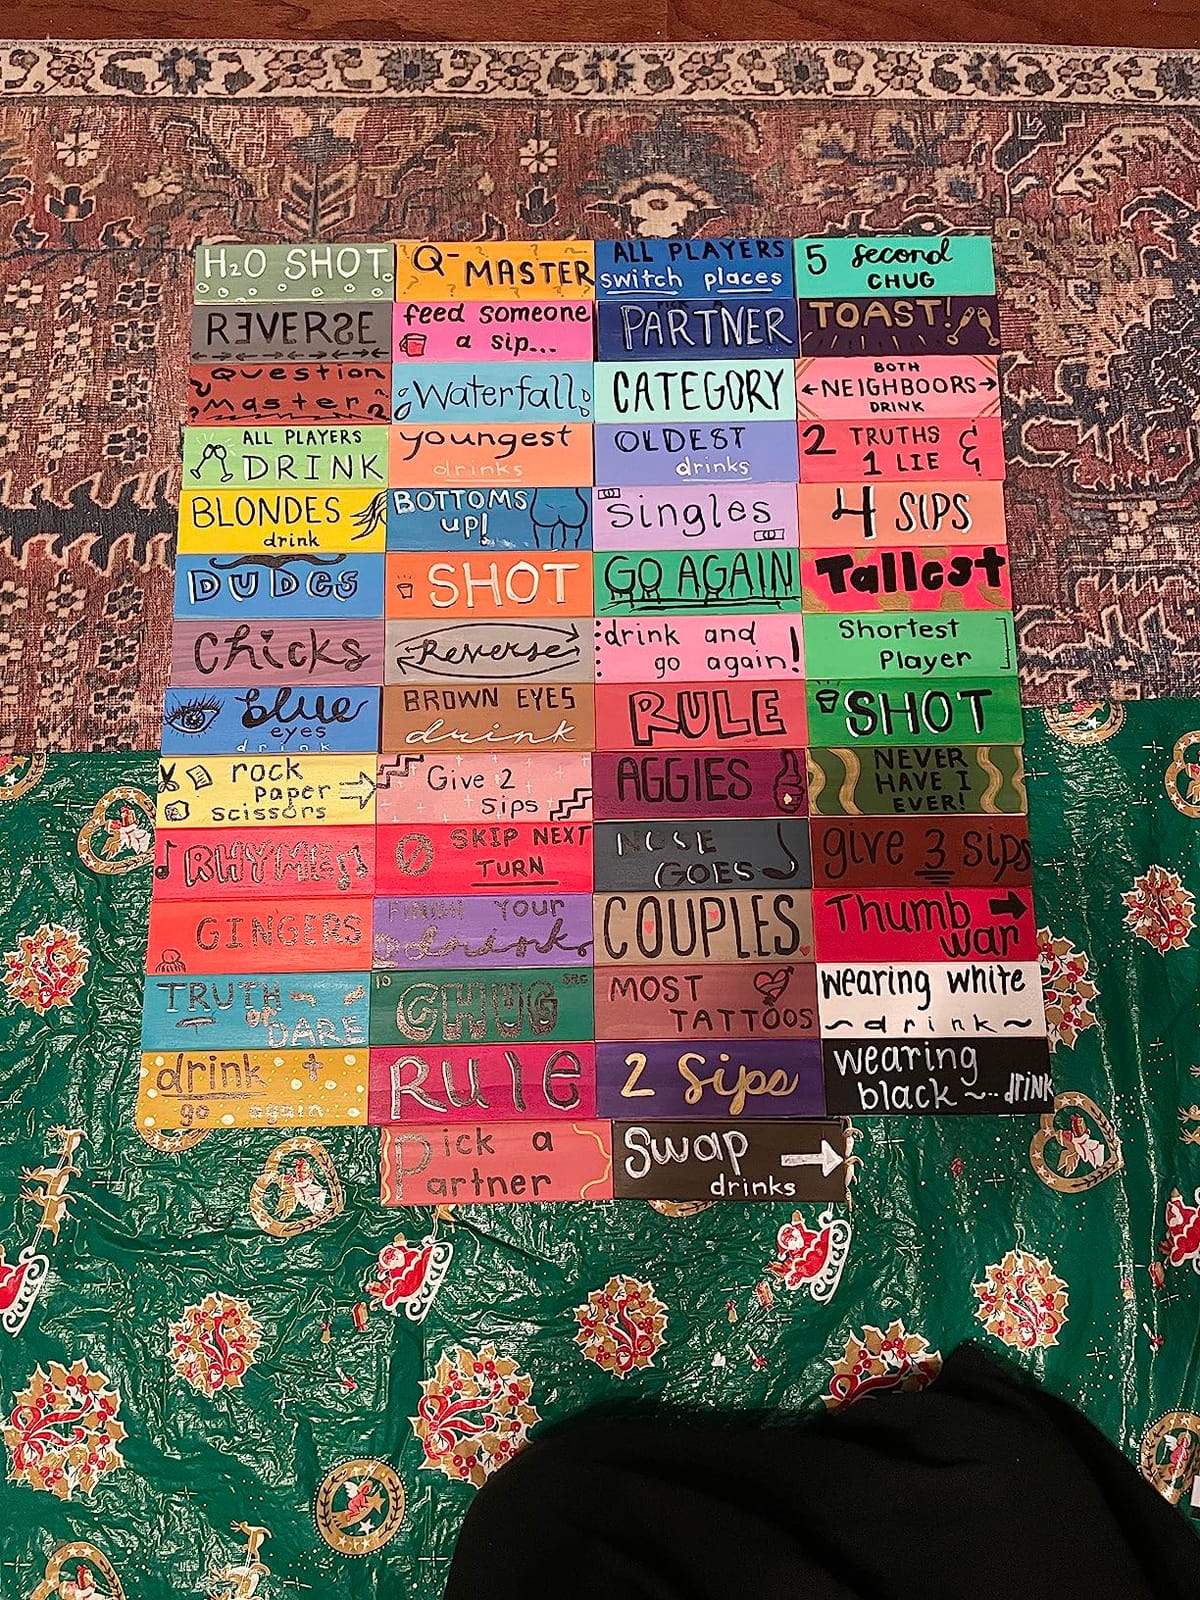 H2O SHOT
Q-MASTER
ALL PLAYERS
switch places
5 second
CHUG
REVERSE
feed someone
a sip...
PICK A
PARTNER
TOAST!
Question
Master
Waterfall
CATEGORY
BOTH
NEIGHBOORS
DRINK
ALL PLAYERS
DRINK
youngest
drinks
OLDEST
drinks
2 TRUTHS &
1 LIE
BLONDES
drink
BOTTOMS
up!
singles
4 SIPS
DUDES
SHOT
GO AGAIN
Tallest
Chicks
Reverse
drink and
go again!
Shortest
Player
blue
eyes
drink
BROWN EYES
drink
RULE
SHOT
rock
paper
scissors
Give 2
sips
AGGIES
NEVER
HAVE I
EVER!
RHYME
SKIP NEXT
TURN
NOSE
GOES
give 3 sips
GINGERS
FINISH YOUR
drinks
COUPLES
Thumb
war
TRUTH
or
DARE
10 SEC
CHUG
MOST
TATTOOS
wearing white
~drink~
drink +
go again
Rule
2 Sips
wearing
black ~... drink
Pick a
Partner
Swap
drinks